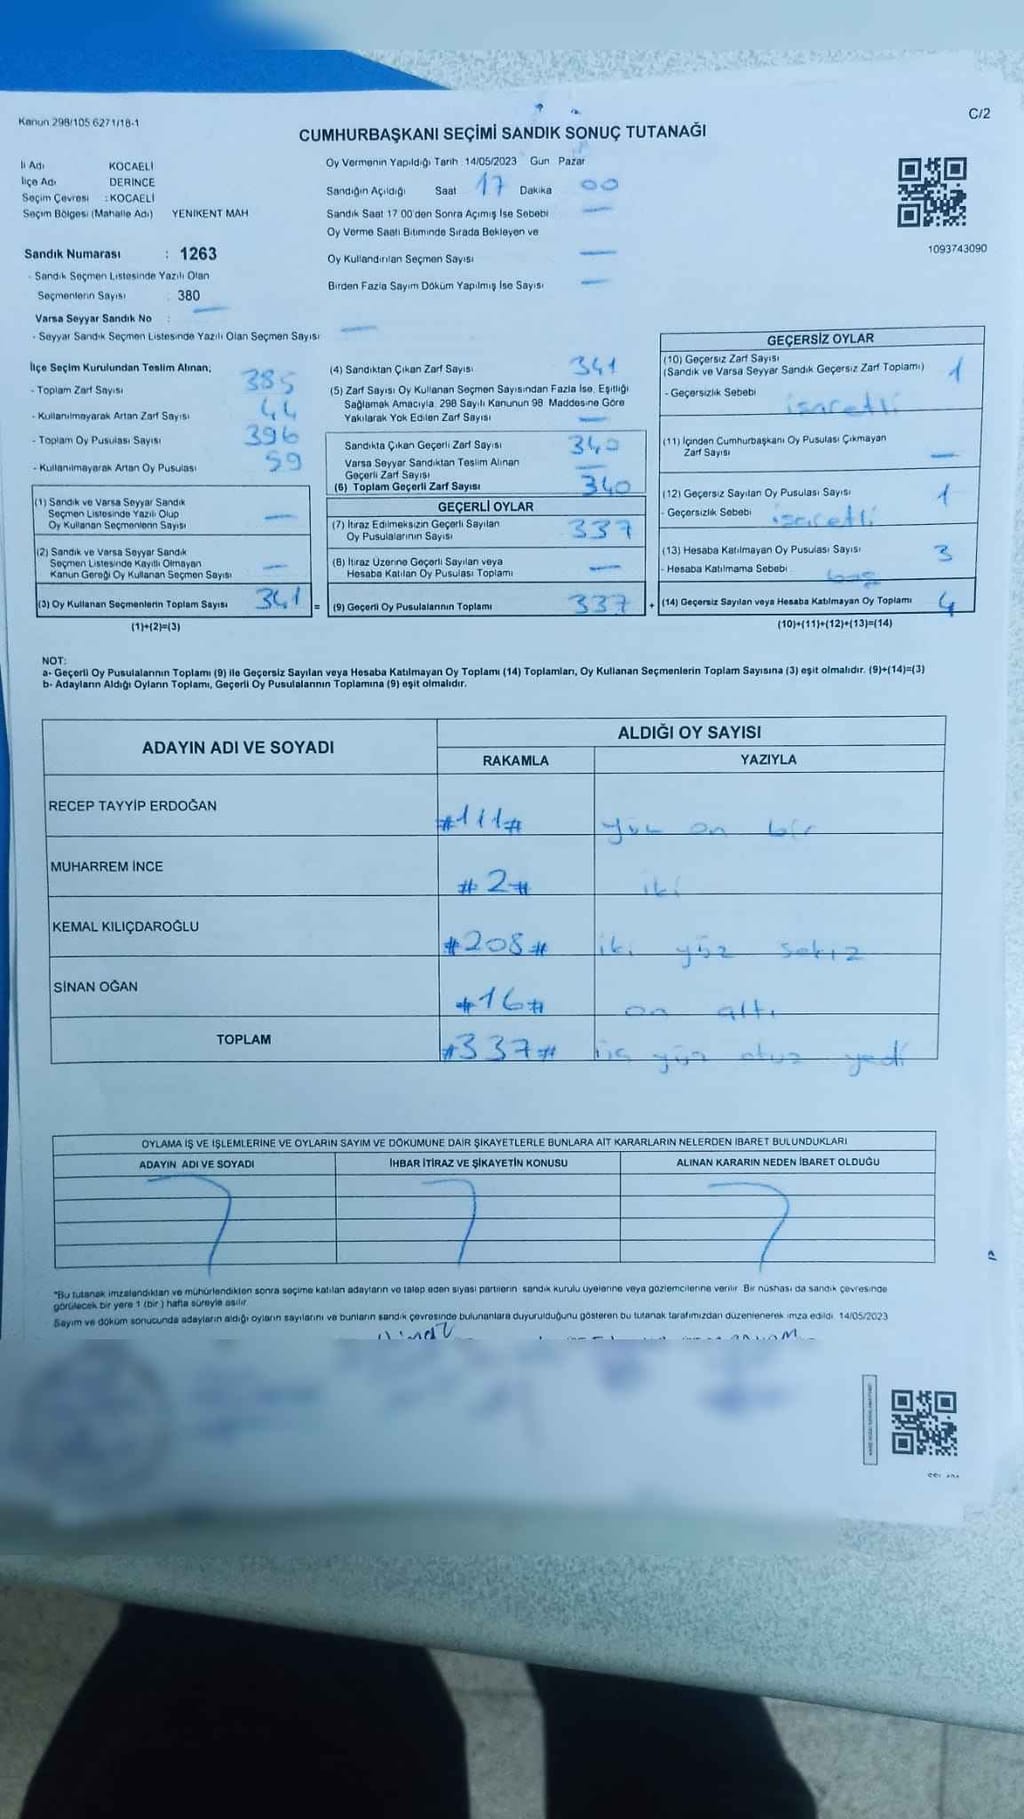 Kanun 298/105 6271/18-1
C/2
CUMHURBAŞKANI SEÇİMİ SANDIK SONUÇ TUTANAĞI
İl Adı KOCAELİ
İlçe Adı DERİNCE
Seçim Çevresi : KOCAELİ
Seçim Bölgesi (Mahalle Adı) YENİKENT MAH
Sandık Numarası : 1263
- Sandık Seçmen Listesinde Yazılı Olan
Seçmenlerin Sayısı : 380
Varsa Seyyar Sandık No :
- Seyyar Sandık Seçmen Listesinde Yazılı Olan Seçmen Sayısı
Oy Vermenin Yapıldığı Tarih 14/05/2023 Gün Pazar
Sandığın Açıldığı Saat 17 Dakika 00
Sandık Saat 17 00'den Sonra Açımış İse Sebebi
Oy Verme Saati Bitiminde Sırada Bekleyen ve
Oy Kullandırılan Seçmen Sayısı
Birden Fazla Sayım Döküm Yapılmış İse Sayısı
1093743090
İlçe Seçim Kurulundan Teslim Alınan;
- Toplam Zarf Sayısı 385
- Kullanılmayarak Artan Zarf Sayısı 44
- Toplam Oy Pusulası Sayısı 396
- Kullanılmayarak Artan Oy Pusulası 59
(1) Sandık ve Varsa Seyyar Sandık
Seçmen Listesinde Yazılı Olup
Oy Kullanan Seçmenlerin Sayısı
(2) Sandık ve Varsa Seyyar Sandık
Seçmen Listesinde Kayıtlı Olmayan
Kanun Gereği Oy Kullanan Seçmen Sayısı
(3) Oy Kullanan Seçmenlerin Toplam Sayısı 341 =
(1)+(2)=(3)
(4) Sandıktan Çıkan Zarf Sayısı 341
(5) Zarf Sayısı Oy Kullanan Seçmen Sayısından Fazla İse, Eşitliği
Sağlamak Amacıyla, 298 Sayılı Kanunun 98. Maddesine Göre
Yakılarak Yok Edilen Zarf Sayısı
Sandıkta Çıkan Geçerli Zarf Sayısı 340
Varsa Seyyar Sandıktan Teslim Alınan
Geçerli Zarf Sayısı
(6) Toplam Geçerli Zarf Sayısı 340
GEÇERLİ OYLAR
(7) İtiraz Edilmeksizin Geçerli Sayılan
Oy Pusulalarının Sayısı 337
(8) İtiraz Üzerine Geçerli Sayılan veya
Hesaba Katılan Oy Pusulası Toplamı
(9) Geçerli Oy Pusulalarının Toplamı 337 +
GEÇERSİZ OYLAR
(10) Geçersiz Zarf Sayısı
(Sandık ve Varsa Seyyar Sandık Geçersiz Zarf Toplamı) 1
- Geçersizlik Sebebi işaretli
(11) İçinden Cumhurbaşkanı Oy Pusulası Çıkmayan
Zarf Sayısı
(12) Geçersiz Sayılan Oy Pusulası Sayısı 1
- Geçersizlik Sebebi işaretli
(13) Hesaba Katılmayan Oy Pusulası Sayısı 3
- Hesaba Katılmama Sebebi boş
(14) Geçersiz Sayılan veya Hesaba Katılmayan Oy Toplamı 4
(10)+(11)+(12)+(13)=(14)
NOT:
a- Geçerli Oy Pusulalarının Toplamı (9) ile Geçersiz Sayılan veya Hesaba Katılmayan Oy Toplamı (14) Toplamları, Oy Kullanan Seçmenlerin Toplam Sayısına (3) eşit olmalıdır. (9)+(14)=(3)
b- Adayların Aldığı Oyların Toplamı, Geçerli Oy Pusulalarının Toplamına (9) eşit olmalıdır.
ADAYIN ADI VE SOYADI ALDIĞI OY SAYISI
RAKAMLA YAZIYLA
RECEP TAYYİP ERDOĞAN #111# yüz on bir
MUHARREM İNCE #2# iki
KEMAL KILIÇDAROĞLU #208# iki yüz sekiz
SİNAN OĞAN #16# on altı
TOPLAM #337# üç yüz otuz yedi
OYLAMA İŞ VE İŞLEMLERİNE VE OYLARIN SAYIM VE DÖKÜMÜNE DAİR ŞİKAYETLERLE BUNLARA AİT KARARLARIN NELERDEN İBARET BULUNDUKLARI
ADAYIN ADI VE SOYADI İHBAR İTİRAZ VE ŞİKAYETİN KONUSU ALINAN KARARIN NEDEN İBARET OLDUĞU
*Bu tutanak imzalandıktan ve mühürlendikten sonra seçime katılan adayların ve talep eden siyasi partilerin sandık kurulu üyelerine veya gözlemcilerine verilir. Bir nüshası da sandık çevresinde
görülecek bir yere 1 (bir) hafta süreyle asılır.
Sayım ve döküm sonucunda adayların aldığı oyların sayılarını ve bunların sandık çevresinde bulunanlara duyurulduğunu gösteren bu tutanak tarafımızdan düzenlenerek imza edildi. 14/05/2023